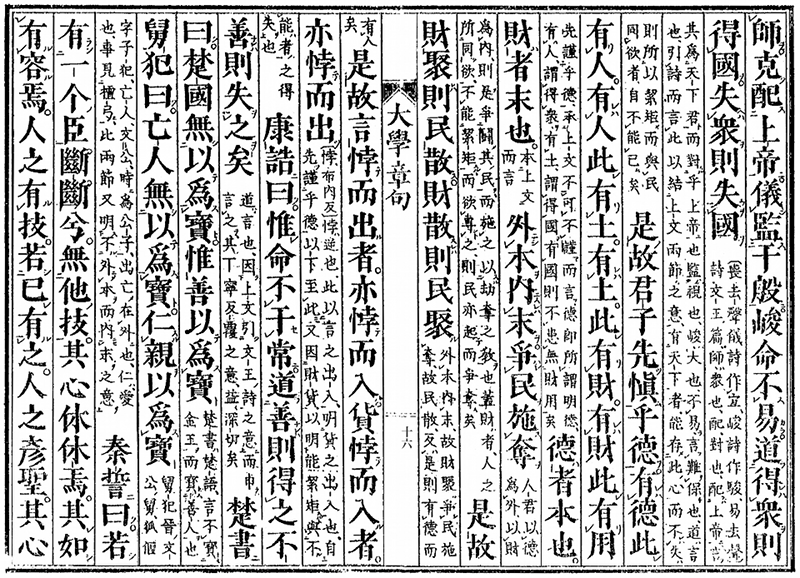 師克配上帝儀監于殷峻命不易道得衆則
得國失衆則失國
喪去聲儀詩作宜峻詩作駿易去聲
詩文王篇師衆也配對也配上帝言
其爲天下君而對乎上帝也監視也峻大也不易言難保也道言
也引詩而言此以結上文兩節之意有天下者能存此心而不失
則所以絜矩而與民
同欲者自不能已矣
是故君子先愼乎德有德此
有人有人此有土有土此有財有財此有用
先謹乎德承上文不可不謹而言德卽所謂明德
有人謂得衆有土謂得國有國則不患無財用矣
德者本也
財者末也
本上文
而言
外本內末爭民施奪
人君以德
爲外以財
爲內則是爭鬪其民而施之以劫奪之敎也蓋財者人之
所同欲不能絜矩而欲專之則民亦起而爭奪矣
是故
財聚則民散財散則民聚
外本內末故財聚爭民施
奪故民散反是則有德而
大學章句
十六
有人
矣
是故言悖而出者亦悖而入貨悖而入者
亦悖而出
悖布內反悖逆也此以言之出入明貨之出入也自
先謹乎德以下至此又因財貨以明能絜矩與不
能者之得
失也
康誥曰惟命不于常道善則得之不
善則失之矣
道言也因上文引文王詩之意而申
言之其丁寧反覆之意益深切矣
楚書
曰楚國無以爲寶惟善以爲寶
楚書楚語言不寶
金玉而寶善人也
舅犯曰亡人無以爲寶仁親以爲寶
舅犯晉文
公舅狐偃
字子犯亡人文公時爲公子出亡在外也仁愛
也事見檀弓此兩節又明不外本而內末之意
秦誓曰若
有一个臣斷斷兮無他技其心休休焉其如
有容焉人之有技若己有之人之彥聖其心